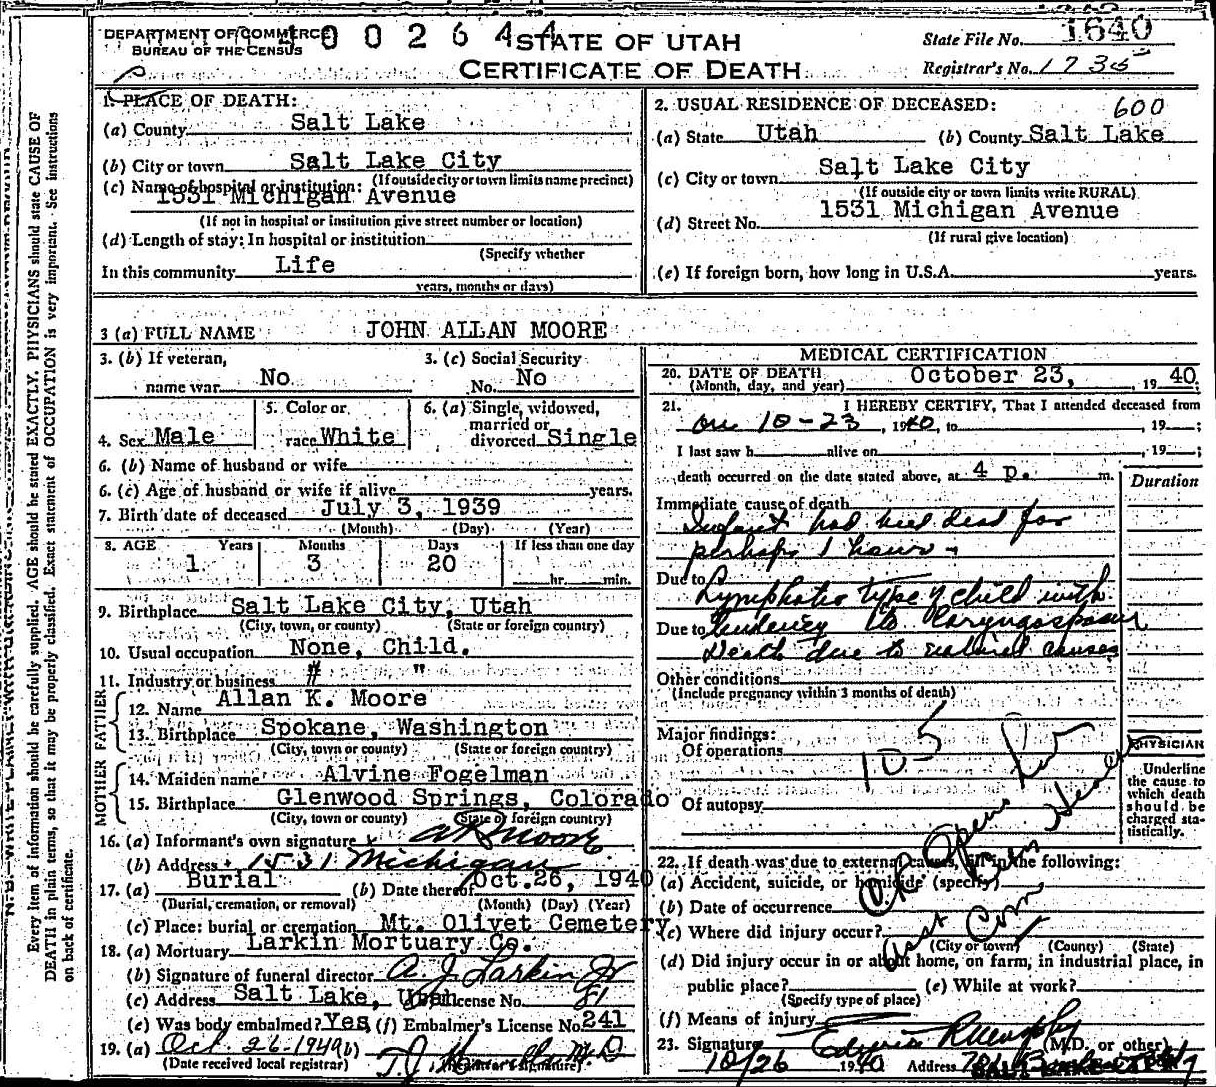 DEPARTMENT OF COMMERCE
BUREAU OF THE CENSUS
4002644
STATE OF UTAH
CERTIFICATE OF DEATH
State File No. 1640
Registrar's No. 1735
1. PLACE OF DEATH:
(a) County Salt Lake
(b) City or town Salt Lake City
(If outside city or town limits name precinct)
(c) Name of hospital or institution:
1531 Michigan Avenue
(If not in hospital or institution give street number or location)
(d) Length of stay: In hospital or institution
(Specify whether
In this community Life
years, months or days)
2. USUAL RESIDENCE OF DECEASED: 600
(a) State Utah (b) County Salt Lake
(c) City or town Salt Lake City
(If outside city or town limits write RURAL)
(d) Street No. 1531 Michigan Avenue
(If rural give location)
(e) If foreign born, how long in U.S.A. years.
3 (a) FULL NAME JOHN ALLAN MOORE
3. (b) If veteran, name war No
3. (c) Social Security No. No
4. Sex Male
5. Color or race White
6. (a) Single, widowed, married or divorced Single
6. (b) Name of husband or wife
6. (c) Age of husband or wife if alive years.
7. Birth date of deceased July 3, 1939
(Month) (Day) (Year)
8. AGE Years Months Days If less than one day
1 3 20 hr. min.
9. Birthplace Salt Lake City, Utah
(City, town, or county) (State or foreign country)
10. Usual occupation None, Child.
11. Industry or business # "
FATHER
12. Name Allan K. Moore
13. Birthplace Spokane, Washington
(City, town or county) (State or foreign country)
MOTHER
14. Maiden name Alvine Fogelman
15. Birthplace Glenwood Springs, Colorado
(City, town or county) (State or foreign country)
16. (a) Informant's own signature x A K Moore
(b) Address 1531 Michigan
17. (a) Burial (b) Date thereof Oct. 26, 1940
(Burial, cremation, or removal) (Month) (Day) (Year)
(c) Place: burial or cremation Mt. Olivet Cemetery
18. (a) Mortuary Larkin Mortuary Co.
(b) Signature of funeral director A. J. Larkin Jr
(c) Address Salt Lake, Utah License No. 81
(e) Was body embalmed? Yes (f) Embalmer's License No. 241
19. (a) Oct. 26-1940 (b) M D
(Date received local registrar) (Registrar's signature)
MEDICAL CERTIFICATION
20. DATE OF DEATH October 23, 1940
(Month, day, and year)
21. I HEREBY CERTIFY, That I attended deceased from
on 10-23, 1940, to , 19 ;
I last saw h alive on , 19 ;
death occurred on the date stated above, at 4 p. m.
Duration
Immediate cause of death
Infant had been dead for
perhaps 1 hour -
Due to Lymphatic type of child with
Due to tendency to laryngospasm
Death due to natural causes
Other conditions
(Include pregnancy within 3 months of death)
Major findings:
Of operations
105
Of autopsy
PHYSICIAN
Underline the cause to which death should be charged statistically.
22. If death was due to external causes, fill in the following:
(a) Accident, suicide, or homicide (specify)
(b) Date of occurrence
(c) Where did injury occur?
(City or town) (County) (State)
(d) Did injury occur in or about home, on farm, in industrial place, in
public place? (e) While at work?
(Specify type of place)
(f) Means of injury
23. Signature (M.D. or other)
10/26 1940 Address
Every item of information should be carefully supplied. AGE should be stated EXACTLY. PHYSICIANS should state CAUSE OF
DEATH in plain terms, so that it may be properly classified. Exact statement of OCCUPATION is very important. See instructions
on back of certificate.